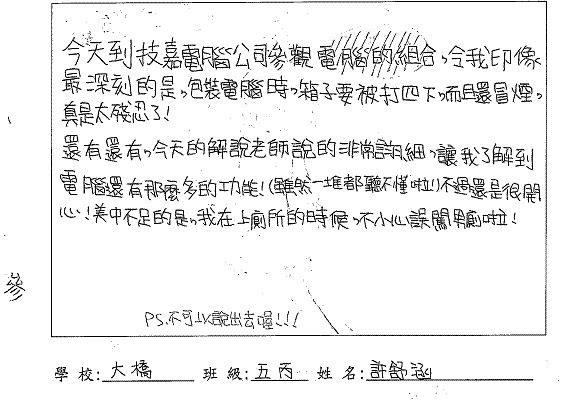 今天到技嘉電腦公司參觀電腦的組合,令我印像
最深刻的是,包裝電腦時,箱子要被打四下,而且還冒煙,
真是太殘忍了!
還有還有,今天的解說老師說的非常詳細,讓我了解到
電腦還有那麼多的功能!(雖然一堆都聽不懂啦!)不過還是很開
心!美中不足的是,我在上廁所的時候,不小心誤闖男廁啦!
PS.不可以說出去喔!!!
參
學校:大橋 班級:五丙 姓名:許舒涵